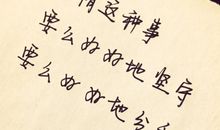 情这种事
要么好好地坚守
要么好好地分